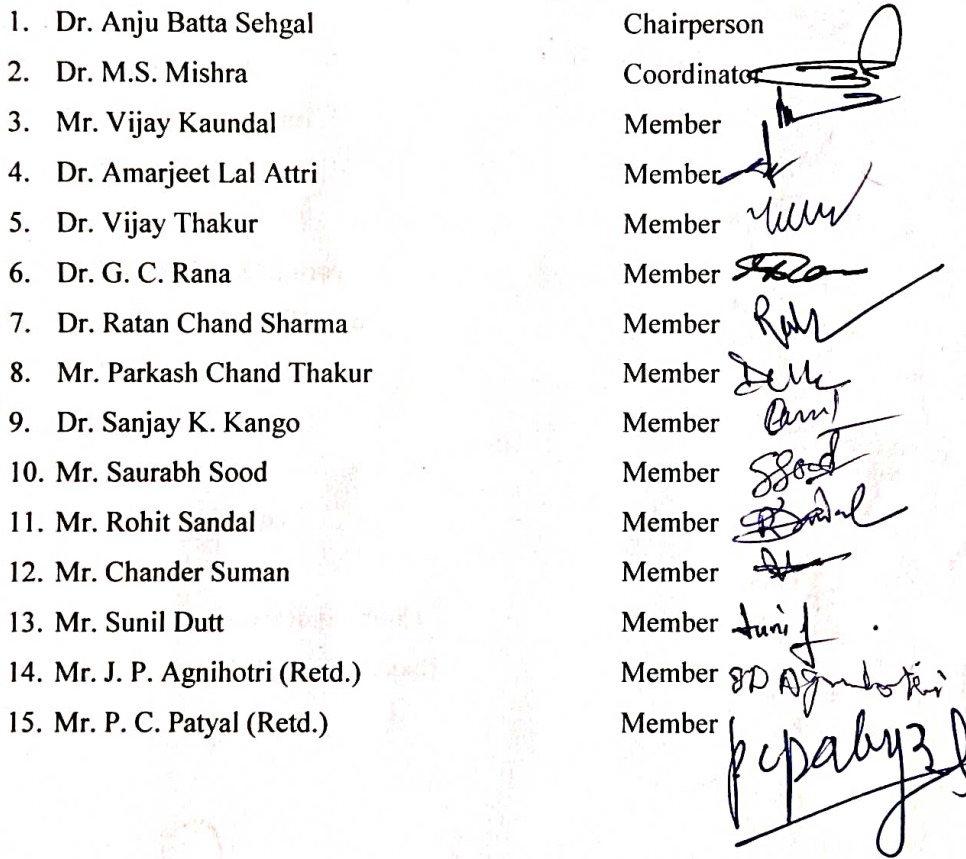 1. Dr. Anju Batta Sehgal Chairperson
2. Dr. M.S. Mishra Coordinator
3. Mr. Vijay Kaundal Member
4. Dr. Amarjeet Lal Attri Member
5. Dr. Vijay Thakur Member
6. Dr. G. C. Rana Member
7. Dr. Ratan Chand Sharma Member
8. Mr. Parkash Chand Thakur Member
9. Dr. Sanjay K. Kango Member
10. Mr. Saurabh Sood Member SSood
11. Mr. Rohit Sandal Member
12. Mr. Chander Suman Member
13. Mr. Sunil Dutt Member
14. Mr. J. P. Agnihotri (Retd.) Member
15. Mr. P. C. Patyal (Retd.) Member